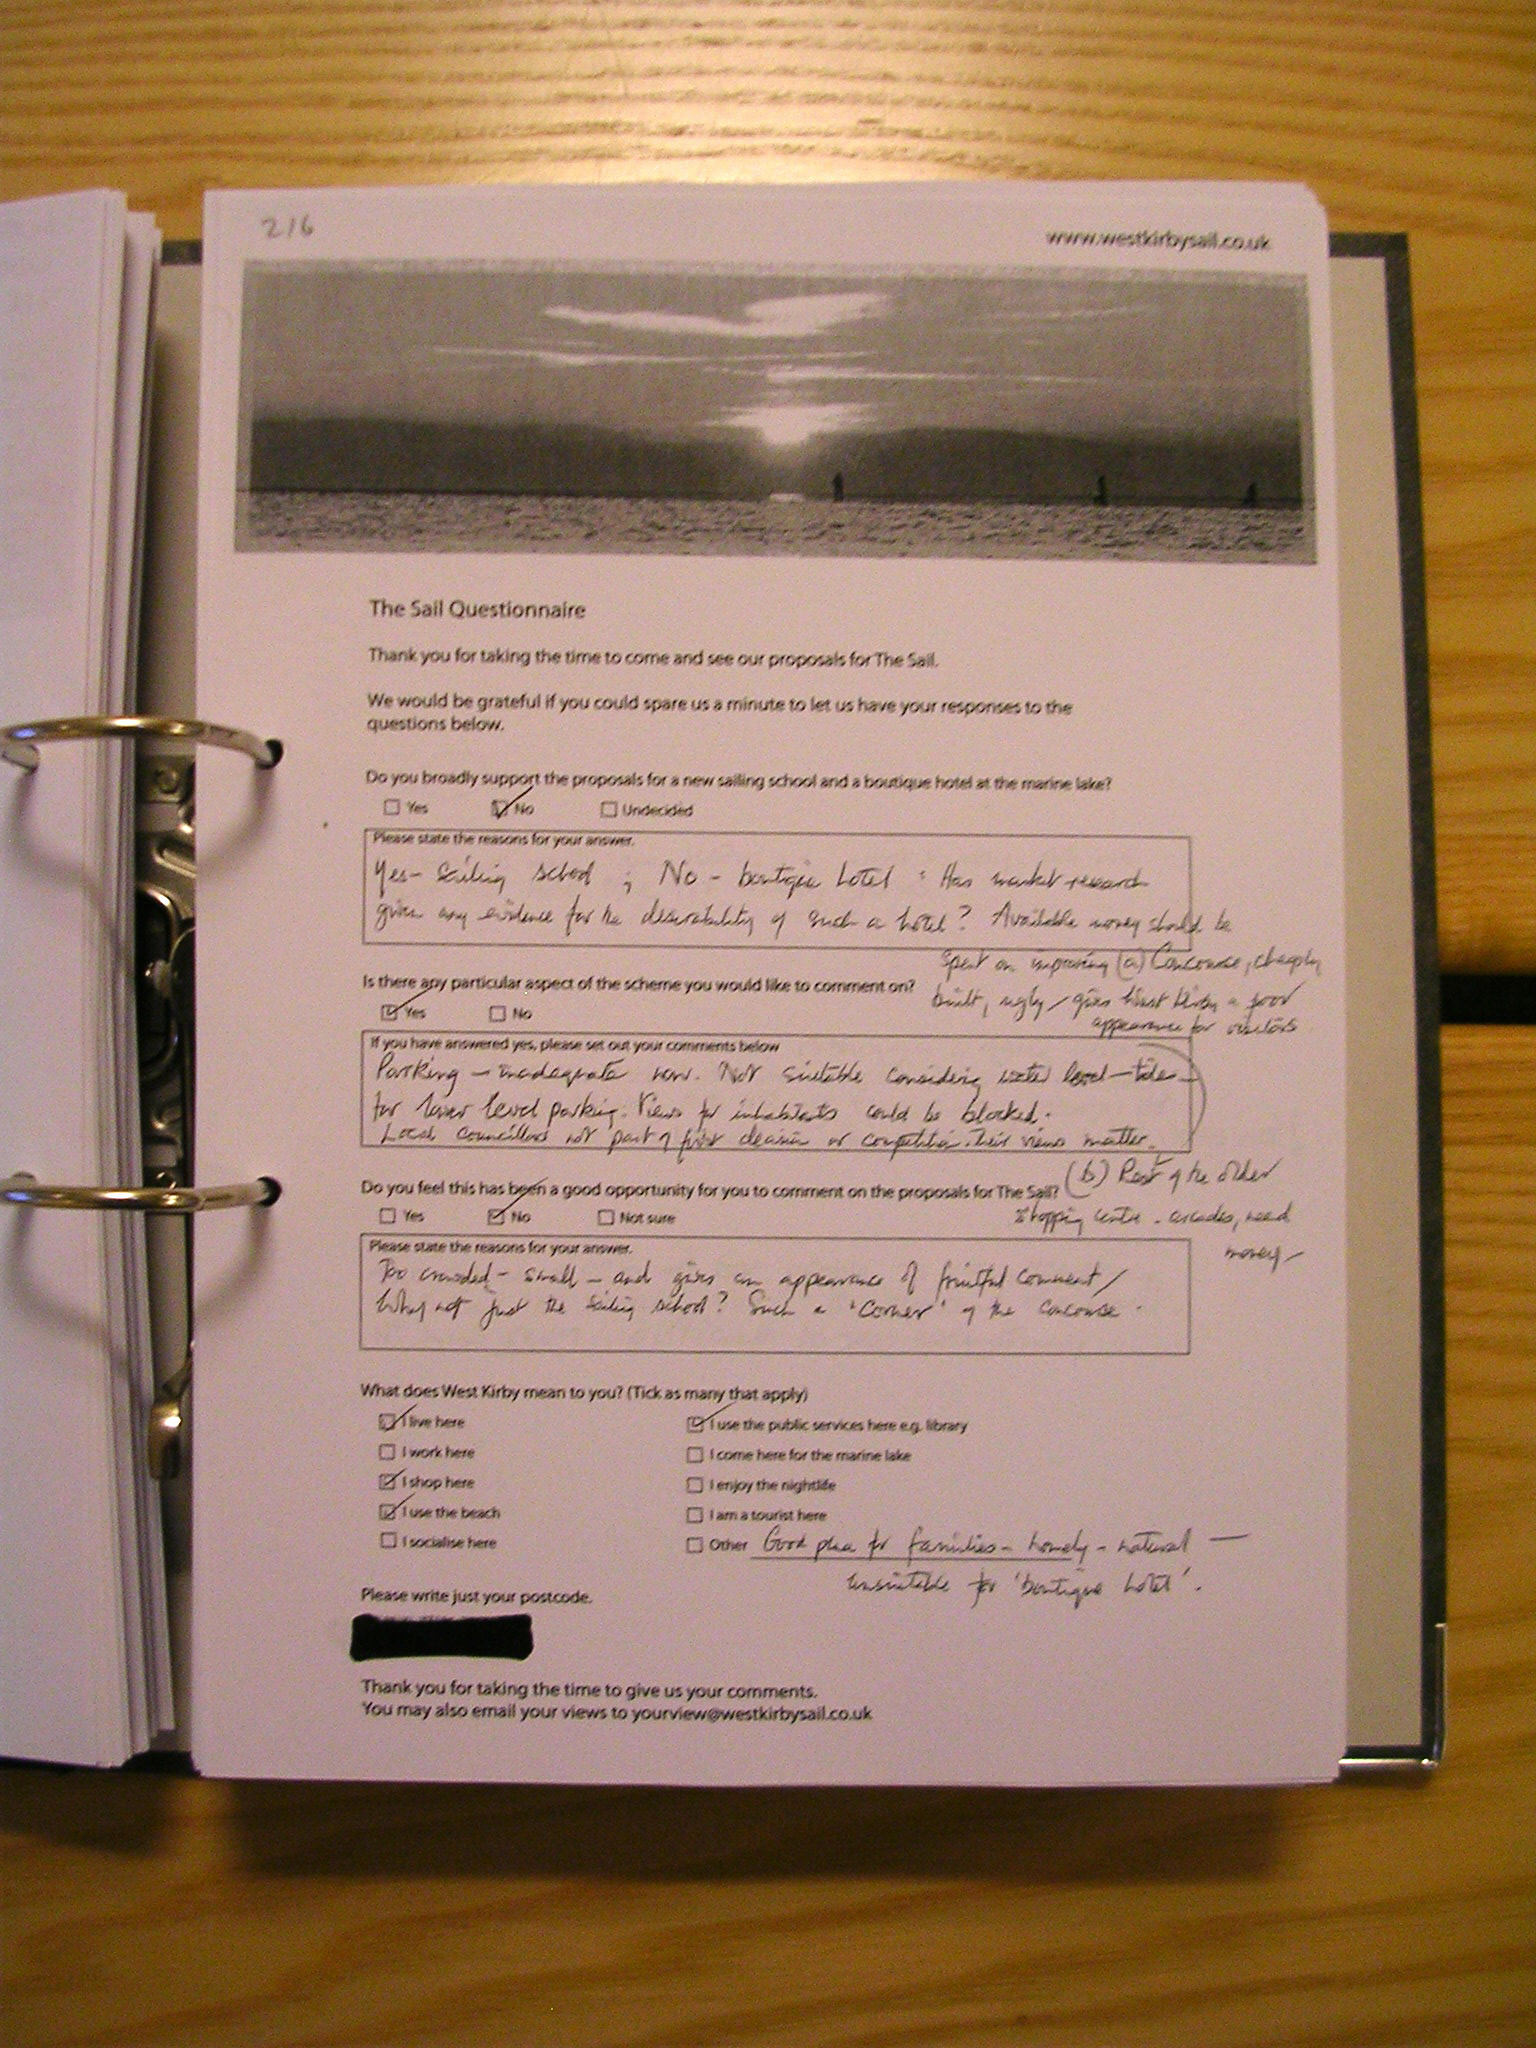 216
www.westkirbysail.co.uk
The Sail Questionnaire
Thank you for taking the time to come and see our proposals for The Sail.
We would be grateful if you could spare us a minute to let us have your responses to the
questions below.
Do you broadly support the proposals for a new sailing school and a boutique hotel at the marine lake?
Yes No Undecided
Please state the reasons for your answer.
Yes - Sailing school ; No - boutique hotel : Has market research
given any evidence for the desirability of such a hotel? Available money should be
spent on improving (a) Concourse, cheaply
built, ugly / gives West Kirby a poor
appearance for visitors
Is there any particular aspect of the scheme you would like to comment on?
Yes No
If you have answered yes, please set out your comments below
Parking - inadequate now. Not suitable considering water level - tides -
for lower level parking. Views for inhabitants could be blocked.
Local Councillors not part of first decision or competition. Their views matter.
(b) Rest of the older
shopping centre - arcades, need
money -
Do you feel this has been a good opportunity for you to comment on the proposals for The Sail?
Yes No Not sure
Please state the reasons for your answer.
Too crowded - small - and gives an appearance of fruitful comment /
Why not just the sailing school? Such a 'corner' of the concourse.
What does West Kirby mean to you? (Tick as many that apply)
I live here
I work here
I shop here
I use the beach
I socialise here
I use the public services here e.g. library
I come here for the marine lake
I enjoy the nightlife
I am a tourist here
Other Good place for families - homely - natural -
unsuitable for 'boutique hotel'.
Please write just your postcode.
Thank you for taking the time to give us your comments.
You may also email your views to yourview@westkirbysail.co.uk